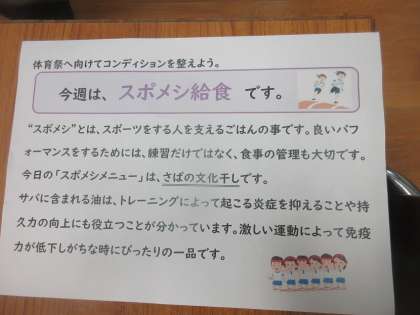 体育祭へ向けてコンディションを整えよう。
今週は、スポメシ給食 です。
“スポメシ”とは、スポーツをする人を支えるごはんの事です。良いパフ
ォーマンスをするためには、練習だけではなく、食事の管理も大切です。
今日の「スポメシメニュー」は、さばの文化干しです。
サバに含まれる油は、トレーニングによって起こる炎症を抑えることや持
久力の向上にも役立つことが分かっています。激しい運動によって免疫
力が低下しがちな時にぴったりの一品です。